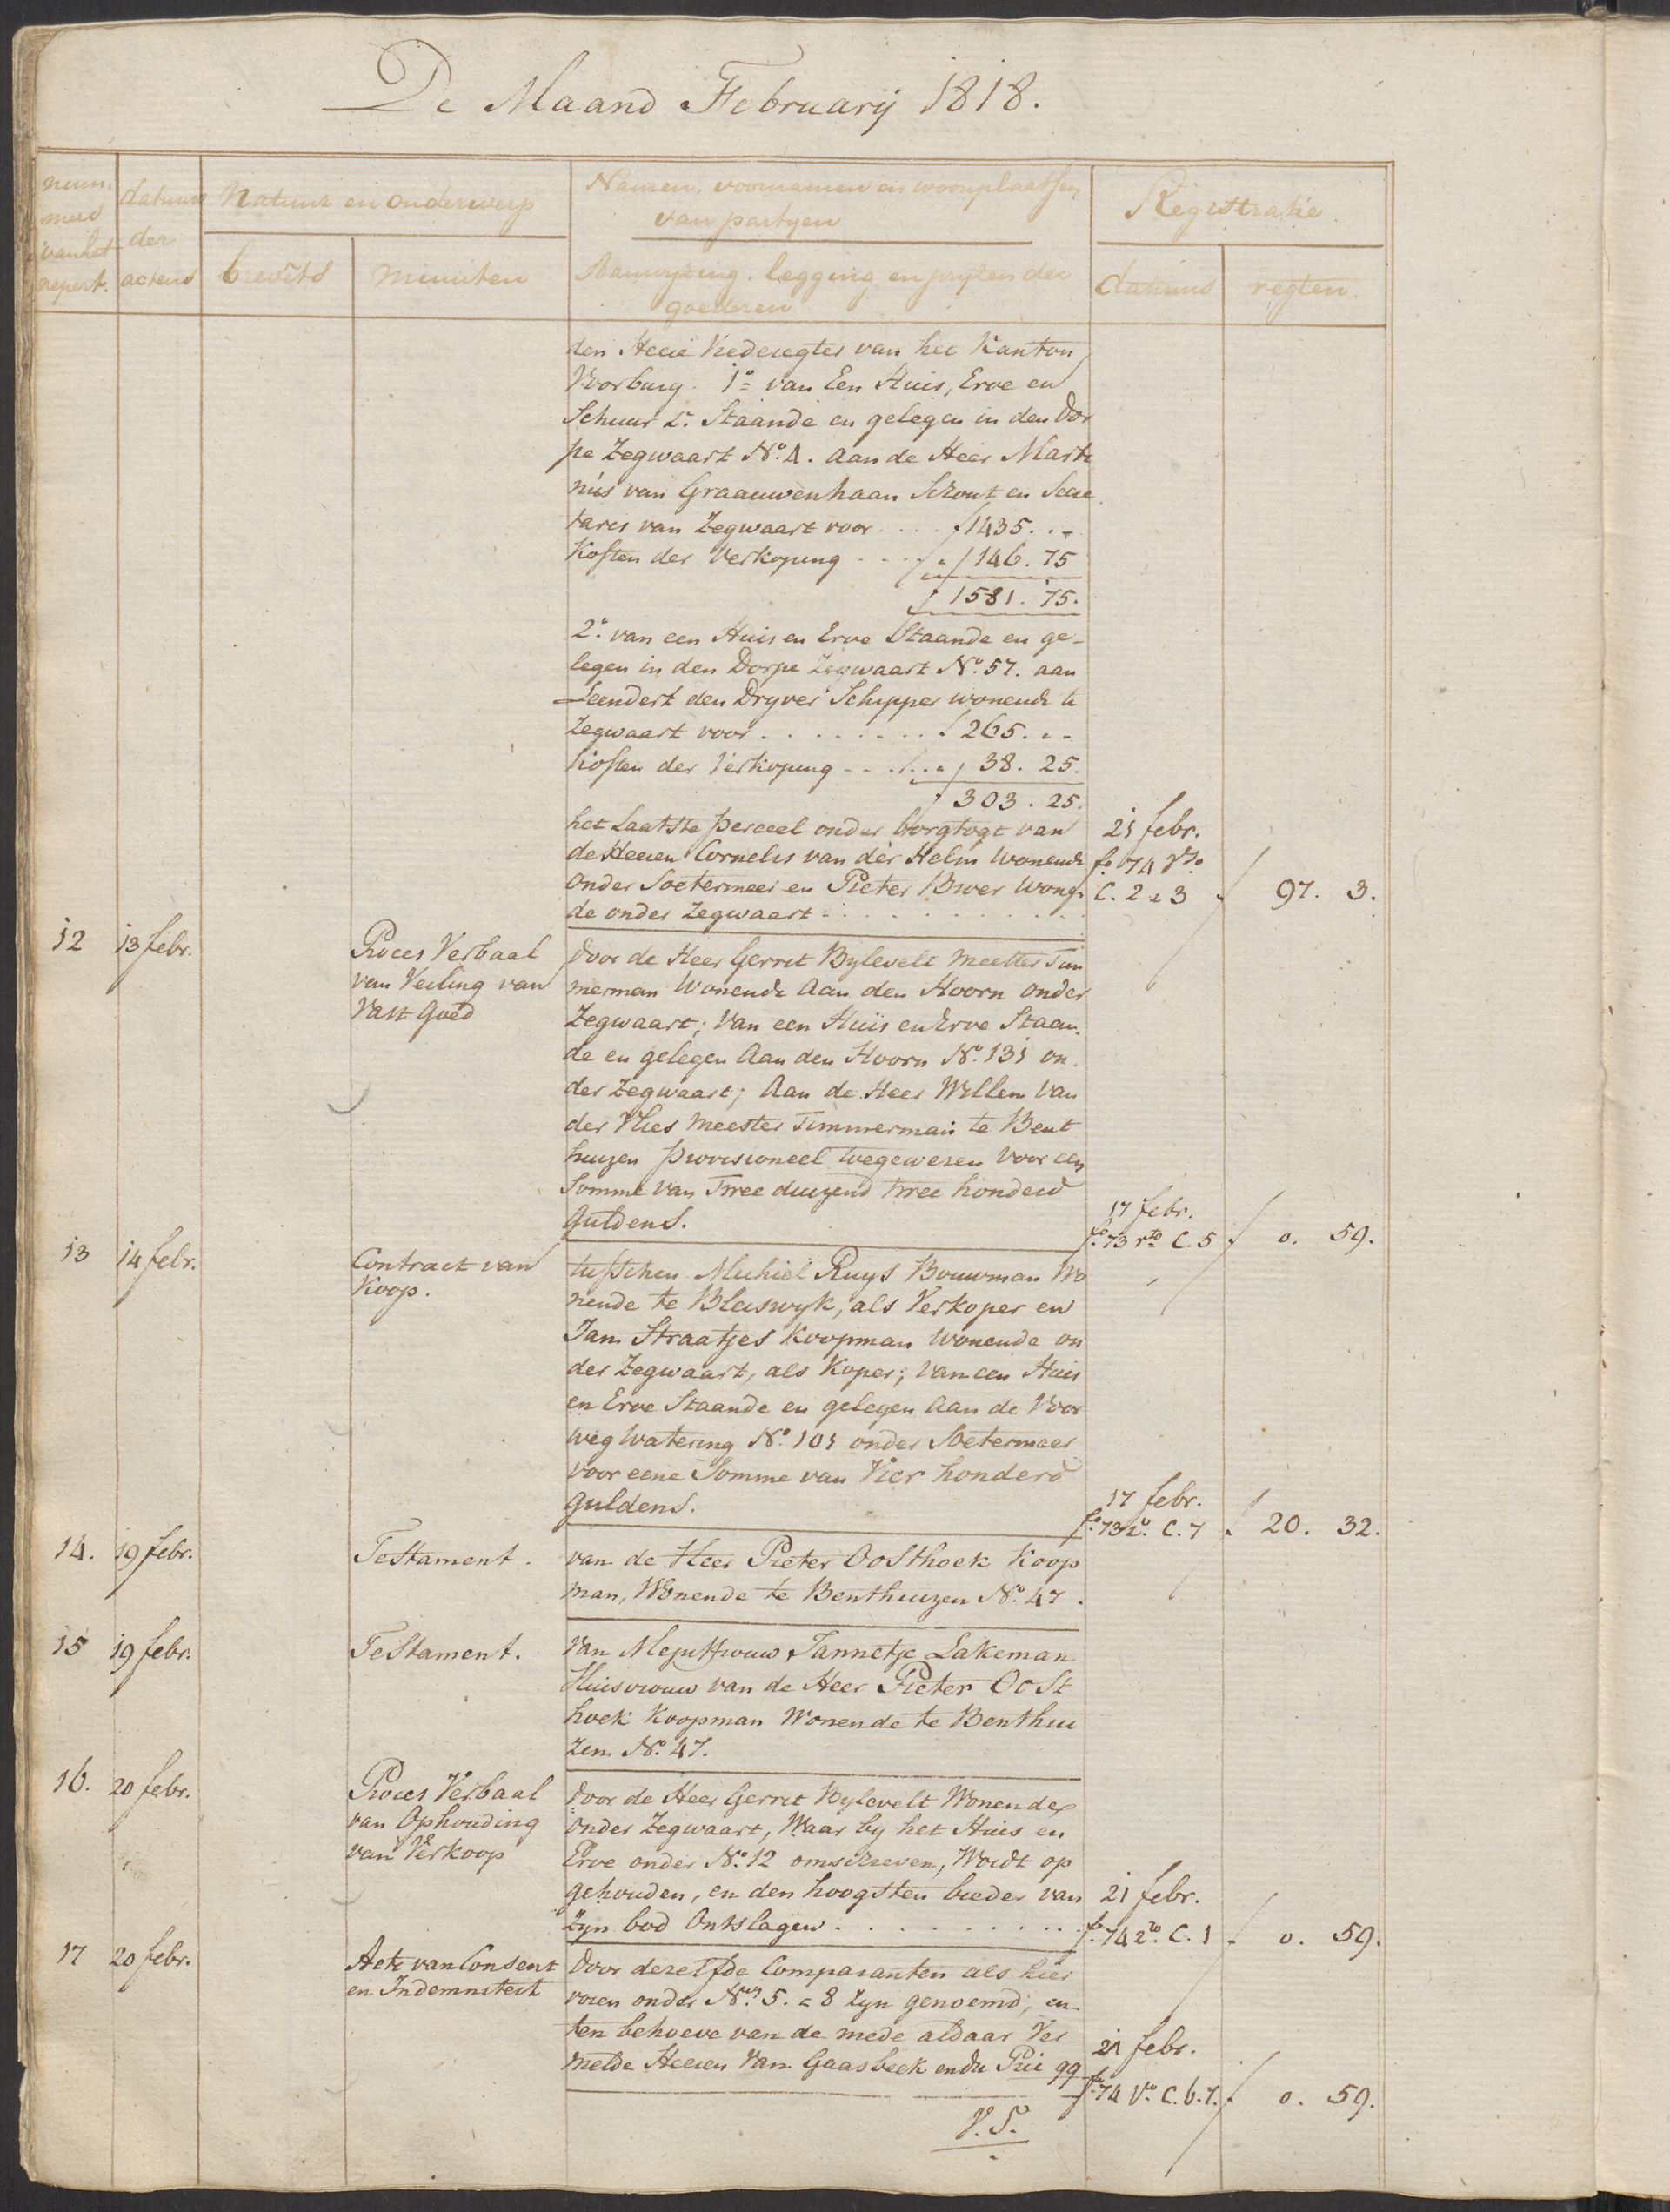 De Maand Februarij 1818.
num,
mers
van het
repert.
datums
der
actens
Natuur en onderwerp
brevets
minuten
Namen, voornamen en woonplaatsen
van partyen
Aanwyzing. legging en pryzen der
goederen
Registratie.
datums
regten.
den Heere Vrederegter van het Kanton
Voorburg. 1o van Een Huis, Erve en
Schuur Staande en gelegen in den Dor
pe Zegwaart No. 4. aan de Heer Marti
nus van Graauwenhaan Schout en Secre
taris van Zegwaart voor .... f 1435. . -
Kosten der Verkoping .... f 146. 75
f 1581. 75.
2o. van een Huis en Erve Staande en ge-
legen in den Dorpe Zegwaart No. 57. aan
Leendert den Dryver Schipper wonende te
Zegwaart voor . . . . . . . . f 265. . -
Kosten der Verkoping - - . . . . f 38. 25.
f 303. 25.
het Laatste perceel onder borgtogt van 21 febr.
de Heeren Cornelis van der Helm wonende fo. 74 Vso.
onder Soetermeer en Pieter Bwer wonen C. 2 a 3 f 97. 3.
de onder Zegwaart . . . . . . . . . .
12 13 febr. Proces Verbaal door de Heer Gerret Bylevelt Meester Tim
van Veiling van merman Wonende Aan den Hoorn onder
Vast Goed Zegwaart; van een Huis en Erve Staan
de en gelegen Aan den Hoorn No. 131 on
der Zegwaart; Aan de Heer Willem van
der Vlies Meester Timmerman te Bent
huizen provisioneel toegewezen voor een
Somme van Twee duizend twee honderd
Guldens. 17 febr.
fo. 73 rto C. 5 f 0. 59.
13 14 febr. Contract van tusschen Michiel Ruys Bouwman Wo
Koop. nende te Bleiswyk, als Verkoper en
Jan Straatjes Koopman Wonende on
der Zegwaart, als Koper; van een Huis
en Erve Staande en gelegen Aan de Voor
weg Watering No. 101 onder Soetermeer
voor eene Somme van Vier honderd
Guldens. 17 febr.
fo. 73 ro. C. 7 f 20. 32.
14. 19 febr. Testament. van de Heer Pieter Oosthoek Koop
man, Wonende te Benthuizen No. 47.
15 19 febr. Testament. Van Mejuffrouw Jannetje Lakeman
Huisvrouw van de Heer Pieter Oost
hoek Koopman Wonende te Benthui
zen No. 47.
16. 20 febr. Proces Verbaal door de Heer Gerret Bylevelt Wonende
van Ophouding onder Zegwaart, Waar by het Huis en
van Verkoop Erve onder No. 12 omschreven, Wordt op
gehouden, en den hoogsten bieder van 21 febr.
Zyn bod Ontslagen . . . . . . . . . fo. 74 ro. C. 1 f 0. 59.
17 20 febr. Acte van Consent Door dezelfde Comparanten als hier
en Indemniteit voren onder Nos. 5. a 8 Zyn genoemd; en
ten behoeve van de mede aldaar Ver 21 febr.
melde Heeren Van Gaasbeek en du Prie qq
fo. 74 Vo. C. 6. 7. f 0. 59.
V. S.